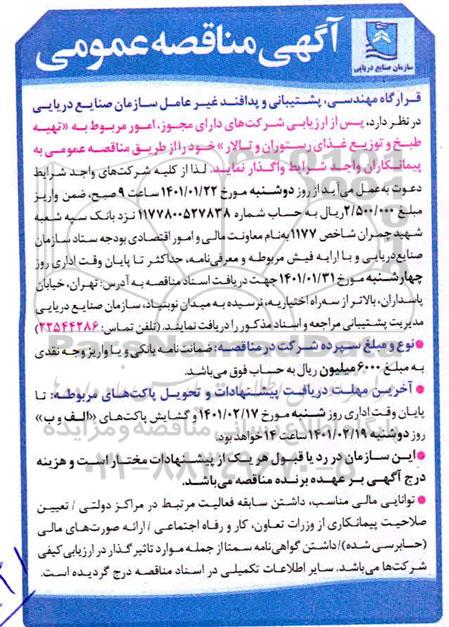 آگهی مناقصه عمومی
سازمان صنایع دریایی
قرارگاه مهندسی، پشتیبانی و پدافند غیر عامل سازمان صنایع دریایی
در نظر دارد، پس از ارزیابی شرکت‌های دارای مجوز، امور مربوط به «تهیه
طبخ و توزیع غذای رستوران و تالار» خود را از طریق مناقصه عمومی به
پیمانکاران واجد شرایط واگذار نماید. لذا از کلیه شرکت‌های واجد شرایط
دعوت به‌عمل می‌آید از روز دوشنبه مورخ ۱۴۰۱/۰۱/۲۲ ساعت ۹ صبح، ضمن واریز
مبلغ ۲/۵۰۰/۰۰۰ ریال به حساب شماره ۱۱۷۷۸۰۰۵۲۷۸۳۸ نزد بانک سپه شعبه
شهید چمران شاخص ۱۱۷۷ به‌نام معاونت مالی و امور اقتصادی بودجه ستاد سازمان
صنایع دریایی و با ارایه فیش مربوطه و معرفی‌نامه، حداکثر تا پایان وقت اداری روز
چهارشنبه مورخ ۱۴۰۱/۰۱/۳۱ جهت دریافت اسناد مناقصه به آدرس: تهران، خیابان
پاسداران، بالاتر از سه‌راه اختیاریه، نرسیده به میدان نوبنیاد، سازمان صنایع دریایی
مدیریت پشتیبانی مراجعه و اسناد مذکور را دریافت نمایند. (تلفن تماس: ۲۲۵۴۴۲۸۶)
● نوع و مبلغ سپرده شرکت در مناقصه: ضمانت نامه بانکی و یا واریز وجه نقدی
به مبلغ ۶۰۰۰ میلیون ریال به حساب فوق می‌باشد.
● آخرین مهلت دریافت پیشنهادات و تحویل پاکت‌های مربوطه: تا
پایان وقت اداری روز شنبه مورخ ۱۴۰۱/۰۲/۱۷ و گشایش پاکت‌های «الف و ب»
روز دوشنبه ۱۴۰۱/۰۲/۱۹ ساعت ۱۴ خواهد بود.
● این سازمان در رد یا قبول هر یک از پیشنهادات مختار است و هزینه
درج آگهی بر عهده برنده مناقصه می‌باشد.
● توانایی مالی مناسب، داشتن سابقه فعالیت مرتبط در مراکز دولتی / تعیین
صلاحیت پیمانکاری از وزرات تعاون، کار و رفاه اجتماعی / ارائه صورت‌های مالی
(حسابرسی شده) / داشتن گواهی نامه سمتا از جمله موارد تاثیر گذار در ارزیابی کیفی
شرکت‌ها می‌باشد. سایر اطلاعات تکمیلی در اسناد مناقصه درج گردیده است.